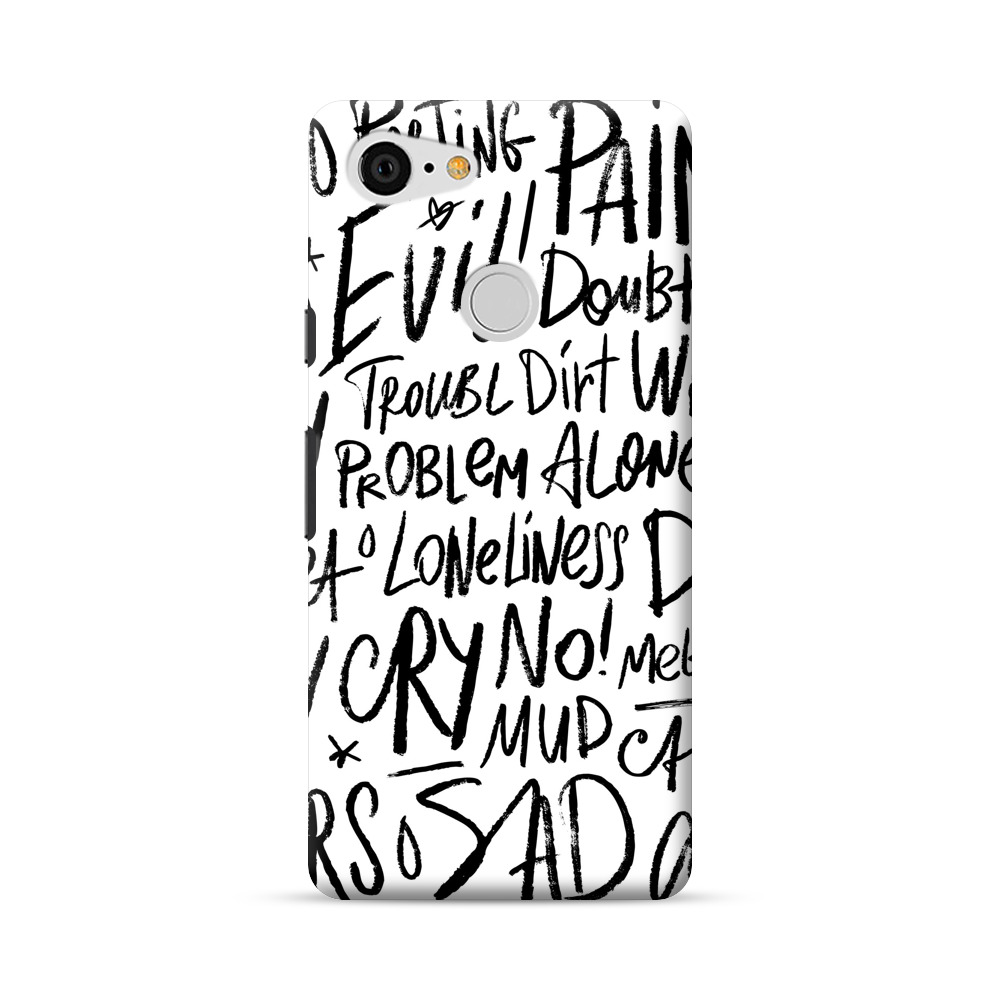 PAIN
Evil!
Doubt
TROUBL Dirt
PROBLEM ALONE
LONELINESS D
CRY NO!
MUD CA
RS SAD